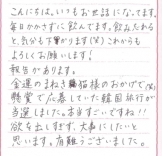 こんにちは。いつもお世話になってます。
毎日かかさずに飲んでます。飲みだれる
と、気分も下がります(笑)これからも
よろしくお願いします!
報告があります。
金運のまねき猫様のおかげで(笑)
懸賞で応募していた韓国旅行が
当選しました。本当すごいですね!!
欲を出しすぎず、大事にしたいと
思います。有難うございました。